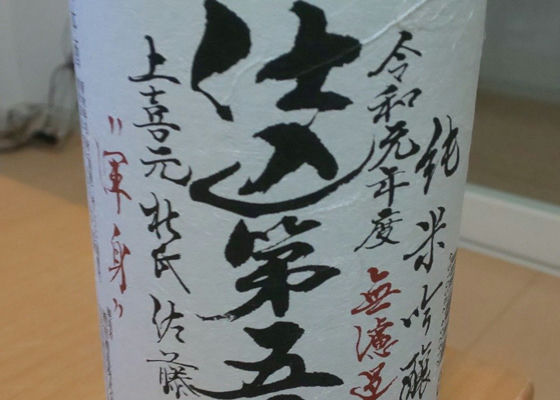 純米吟醸
令和元年度
無濾過
仕込第五
上喜元杜氏 佐藤
"渾身"